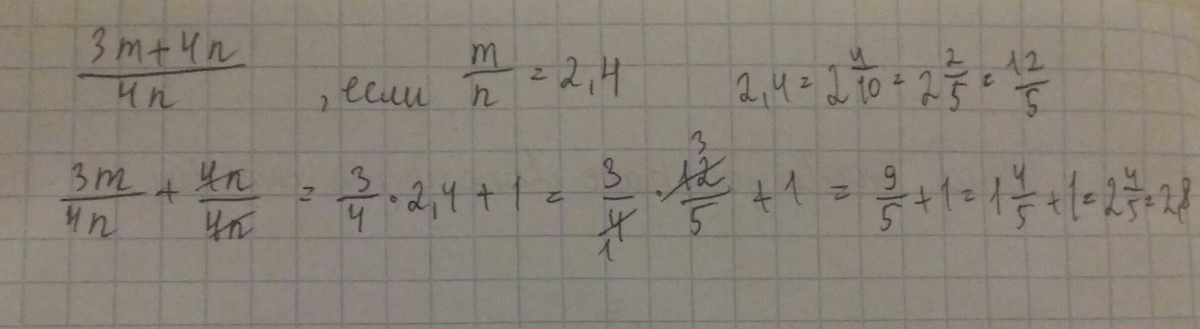 (3m+4n)/(4n) , если m/n = 2,4 2,4 = 2 4/10 = 2 2/5 = 12/5
3m/4n + 4n/4n = 3/4 · 2,4 + 1 = 3/4 1 · 12/5 3 + 1 = 9/5 + 1 = 1 4/5 + 1 = 2 4/5 = 2,8